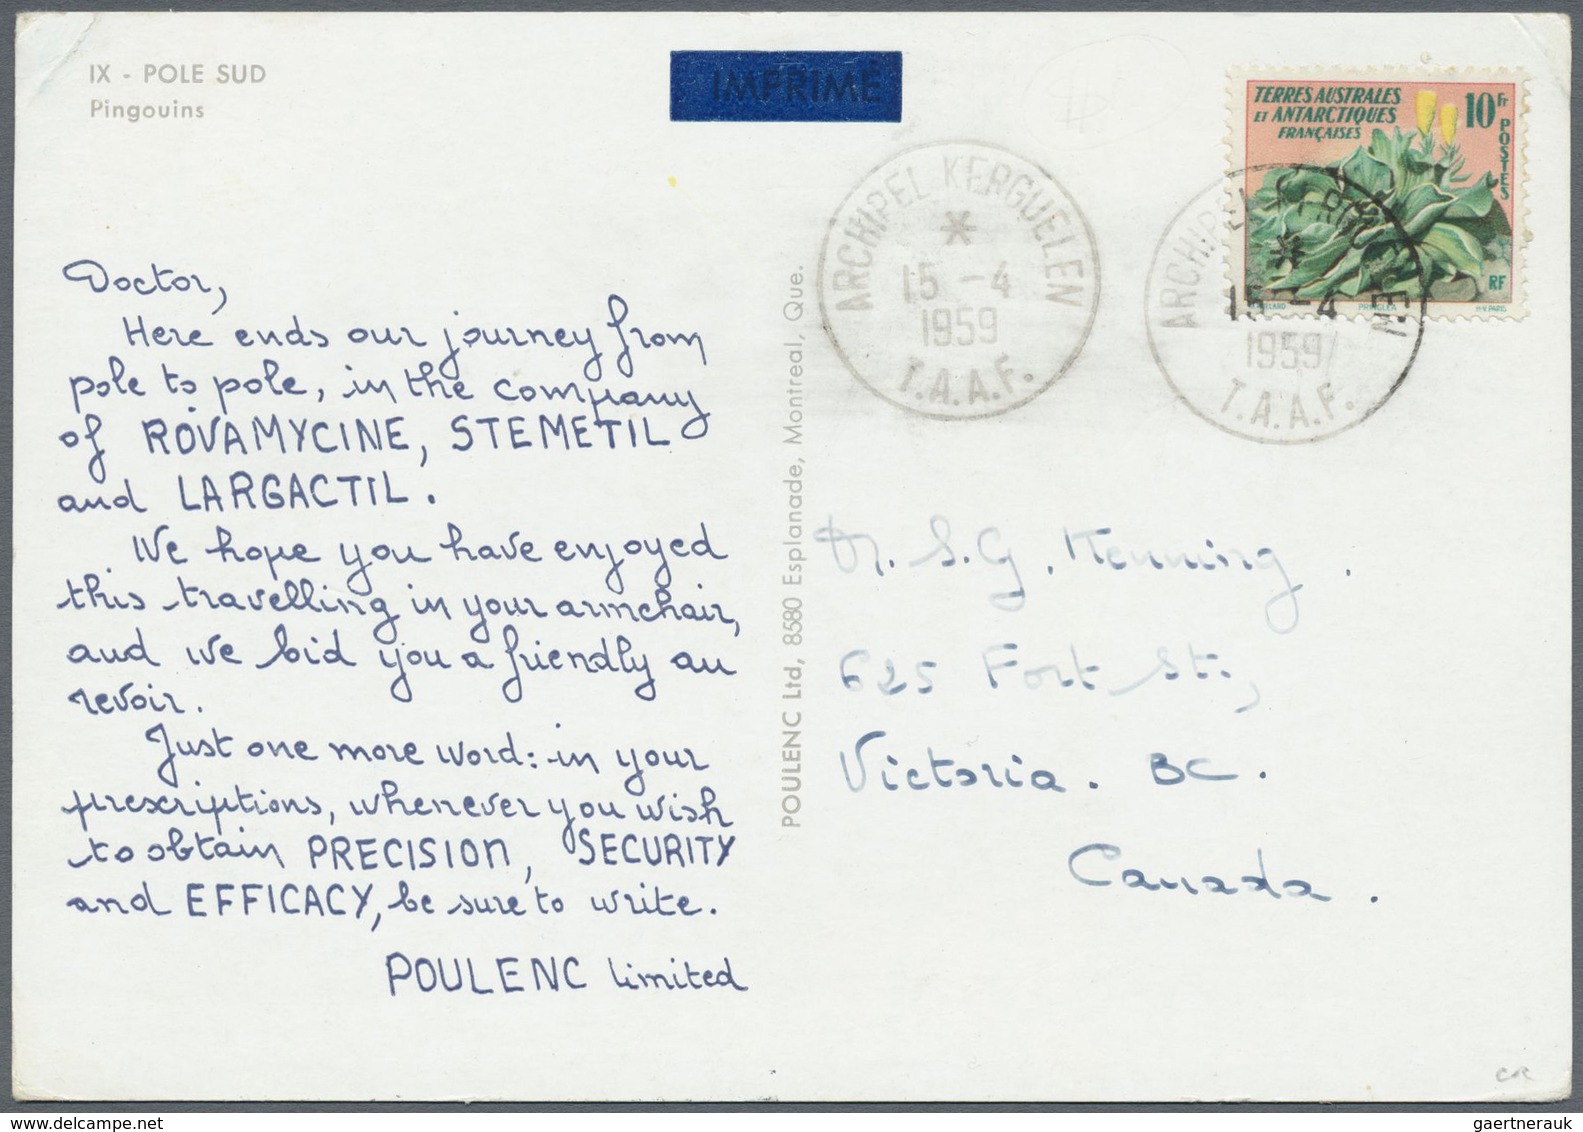 IX - POLE SUD
Pingouins
IMPRIMÉ
TERRES AUSTRALES
ET ANTARCTIQUES
FRANÇAISES
10 Fr
POSTES
RF
PRINGLEA
H-V. PARIS
ARCHIPEL KERGUELEN
15 -4
1959
T.A.A.F.
ARCHIPEL KERGUELEN
15 -4
1959
T.A.A.F.
Doctor,
Here ends our journey from
pole to pole, in the company
of ROVAMYCINE, STEMETIL
and LARGACTIL.
We hope you have enjoyed
this travelling in your armchair,
and we bid you a friendly au
revoir.
Just one more word: in your
prescriptions, whenever you wish
to obtain PRECISION, SECURITY
and EFFICACY, be sure to write.
POULENC limited
POULENC Ltd, 8580 Esplanade, Montreal, Que.
Dr. S.G. Kenning
625 Fort St.,
Victoria. BC.
Canada.
CR
gaertnerauk @ delcampe.net